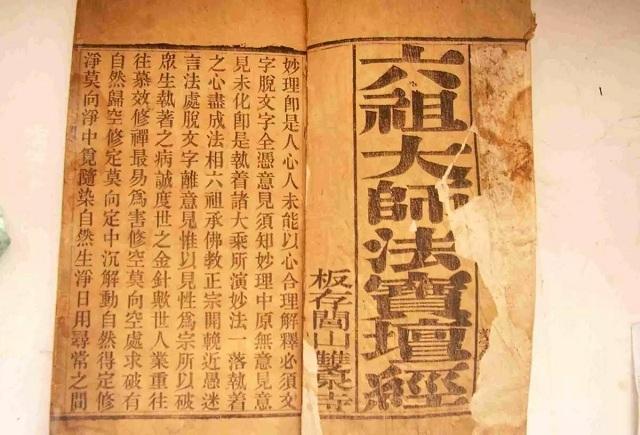 六祖大師法寶壇經
板存閭山雙泉寺
妙理卽是人心人未能以心合理解釋必須文
字脫文字全憑意見須知妙理中原無意見意
見未化卽是執着諸大乘所演妙法一落執着
之心盡成法相六祖承佛教正宗開輓近愚迷
言法處脫文字離意見惟以見性爲宗所以破
衆生執著之病誠度世之金針數世人業重往
往慕效修禪最易爲害修空莫向空處求破有
自然歸空修定莫向定中沉解動自然得定修
淨莫向淨中覓隨染自然生淨日用尋常之間